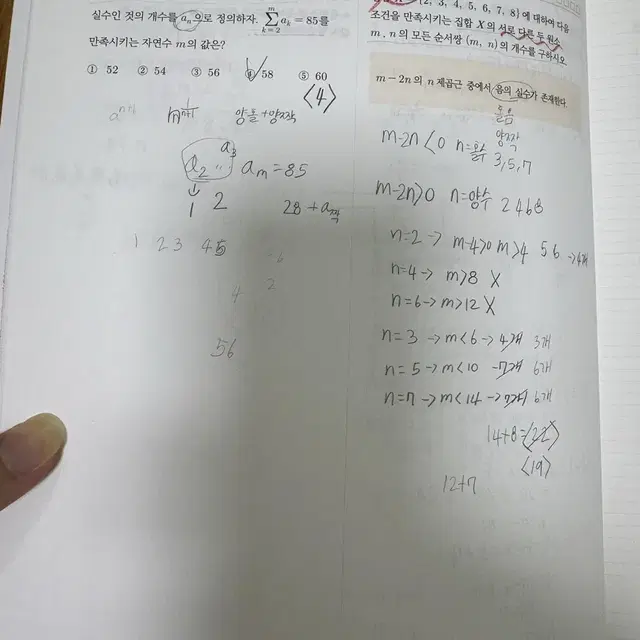 실수인 것의 개수를 aₙ으로 정의하자. ∑(k=2, m) aₖ = 85를
만족시키는 자연수 m의 값은?
① 52 ② 54 ③ 56 ④ 58 ⑤ 60
<4>
양홀+양짝
a₂ ·· a₃
aₘ=85
↓
1 2
28+a짝
1 2 3 4 5
4 2
56
{2, 3, 4, 5, 6, 7, 8}에 대하여 다음
조건을 만족시키는 집합 X의 서로 다른 두 원소
m, n의 모든 순서쌍 (m, n)의 개수를 구하시오.
m-2n의 n제곱근 중에서 음의 실수가 존재한다.
홀음
양짝
m-2n<0 n=홀수
3, 5, 7
m-2n>0 n=양수 2 4 6 8
n=2 → m-4>0 m>4 5 6 → 4개
n=4 → m>8 X
n=6 → m>12 X
n=3 → m<6 → 4개 3개
n=5 → m<10 → 7개 6개
n=7 → m<14 → 7개 6개
14+8=<22>
<19>
12+7